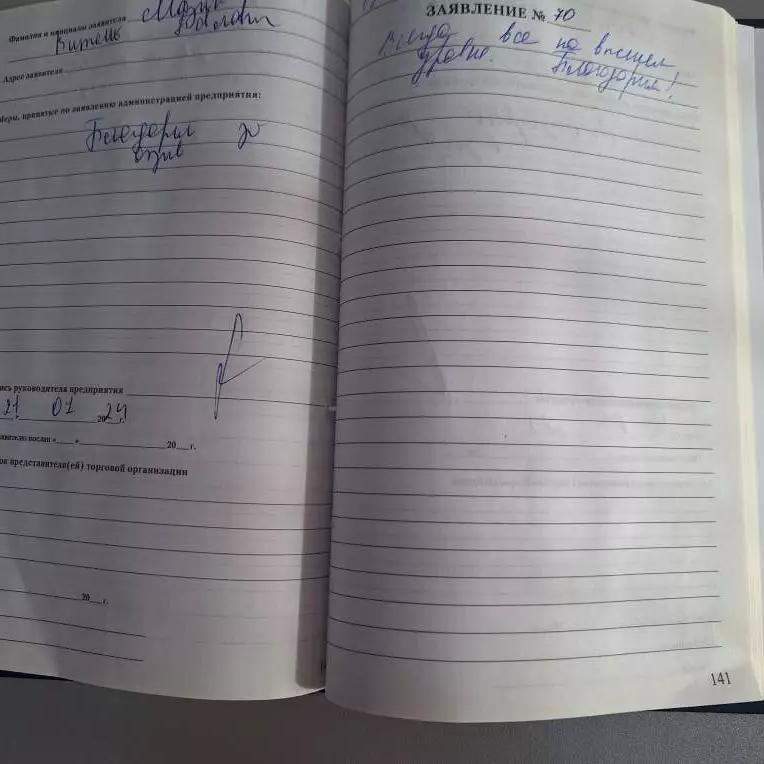 Фамилия и инициалы заявителя
Адрес заявителя
Меры, принятые по заявлению администрацией предприятия:
Благодарим
за
отзыв
ись руководителя предприятия
21 01 2024 г.
20 г.
ов представителя(ей) торговой организации
20 г.
ЗАЯВЛЕНИЕ № 70
Всегда все на высшем
уровне. Благодарим!
141